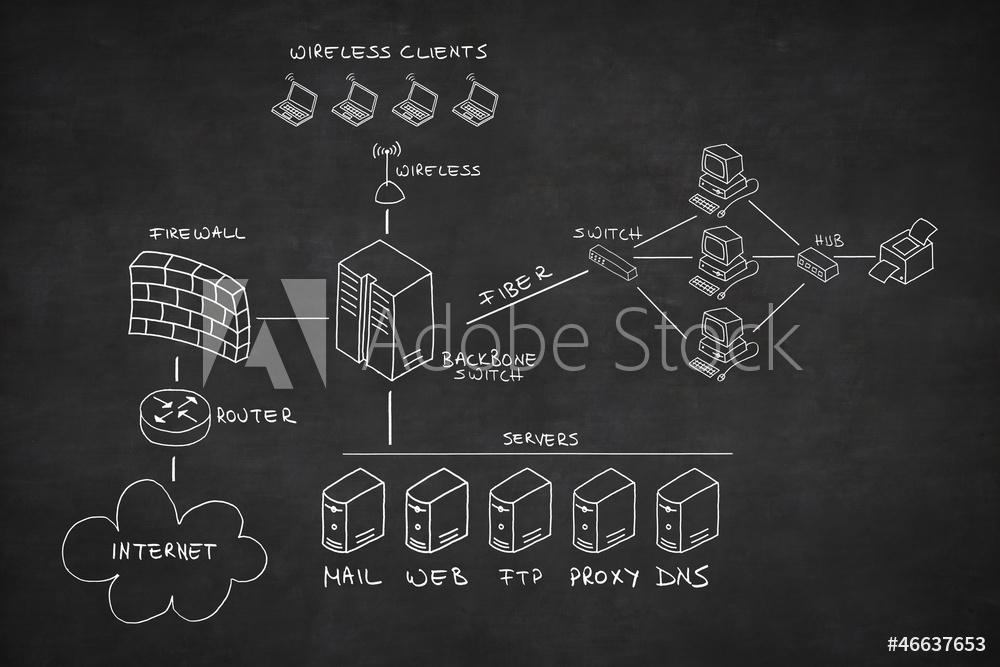 WIRELESS CLIENTS
WIRELESS
FIREWALL
SWITCH
HUB
FIBER
Adobe Stock
BACKBONE
SWITCH
ROUTER
SERVERS
INTERNET
MAIL WEB FTP PROXY DNS
#46637653